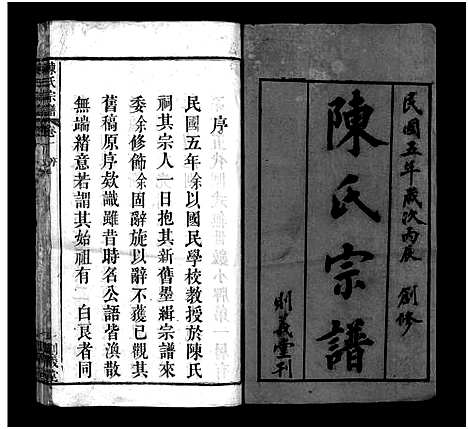 民國五年歲次丙辰 創修
陳氏宗譜
義堂刊
序
民國五年余以國民學校教授於陳氏
祠其宗人一日抱其新舊墨緝宗譜來
委余修飾余固辭旋以辭不獲已觀其
舊稿原序欵識雖昔時名公語皆渙散
無端緒意若謂其始祖有 白良者同
陳氏宗譜 卷一 序